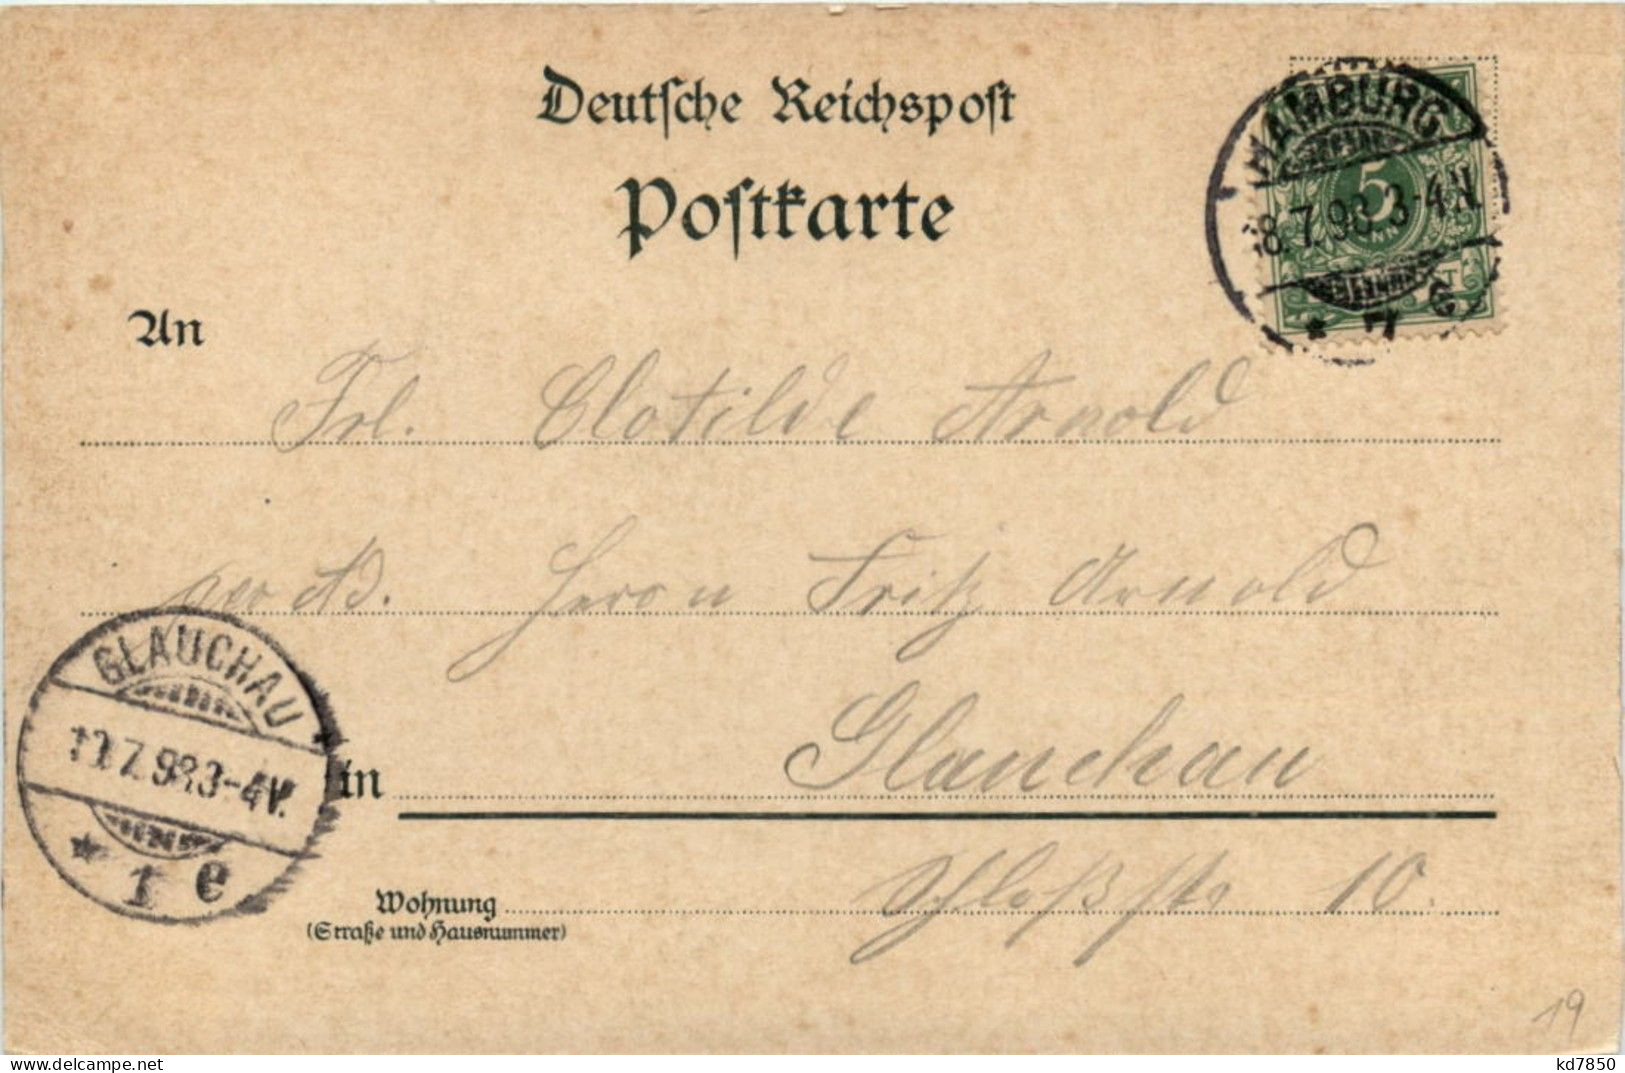 Deutsche Reichspost
Postkarte
HAMBURG
8.7.98.3-4N.
5
* 7
An
Frl. Clotilde Arnold
per Ad. Herrn Fritz Arnold
GLAUCHAU
10.7.98.3-4V.
* 1 e
in Glauchau
Wohnung Schloßstr. 10.
(Straße und Hausnummer)
19
delcampe.net
kd7850